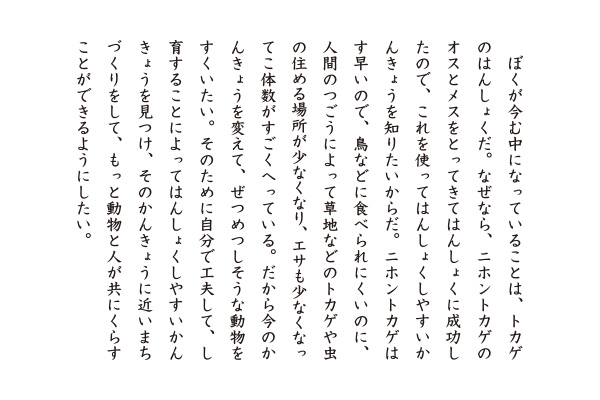 ぼくが今む中になっていることは、トカゲ
のはんしょくだ。なぜなら、ニホントカゲの
オスとメスをとってきてはんしょくに成功し
たので、これを使ってはんしょくしやすいか
んきょうを知りたいからだ。ニホントカゲは
す早いので、鳥などに食べられにくいのに、
人間のつごうによって草地などのトカゲや虫
の住める場所が少なくなり、エサも少なくなっ
てこ体数がすごくへっている。だから今のか
んきょうを変えて、ぜつめつしそうな動物を
すくいたい。そのために自分で工夫して、し
育することによってはんしょくしやすいかん
きょうを見つけ、そのかんきょうに近いまち
づくりをして、もっと動物と人が共にくらす
ことができるようにしたい。